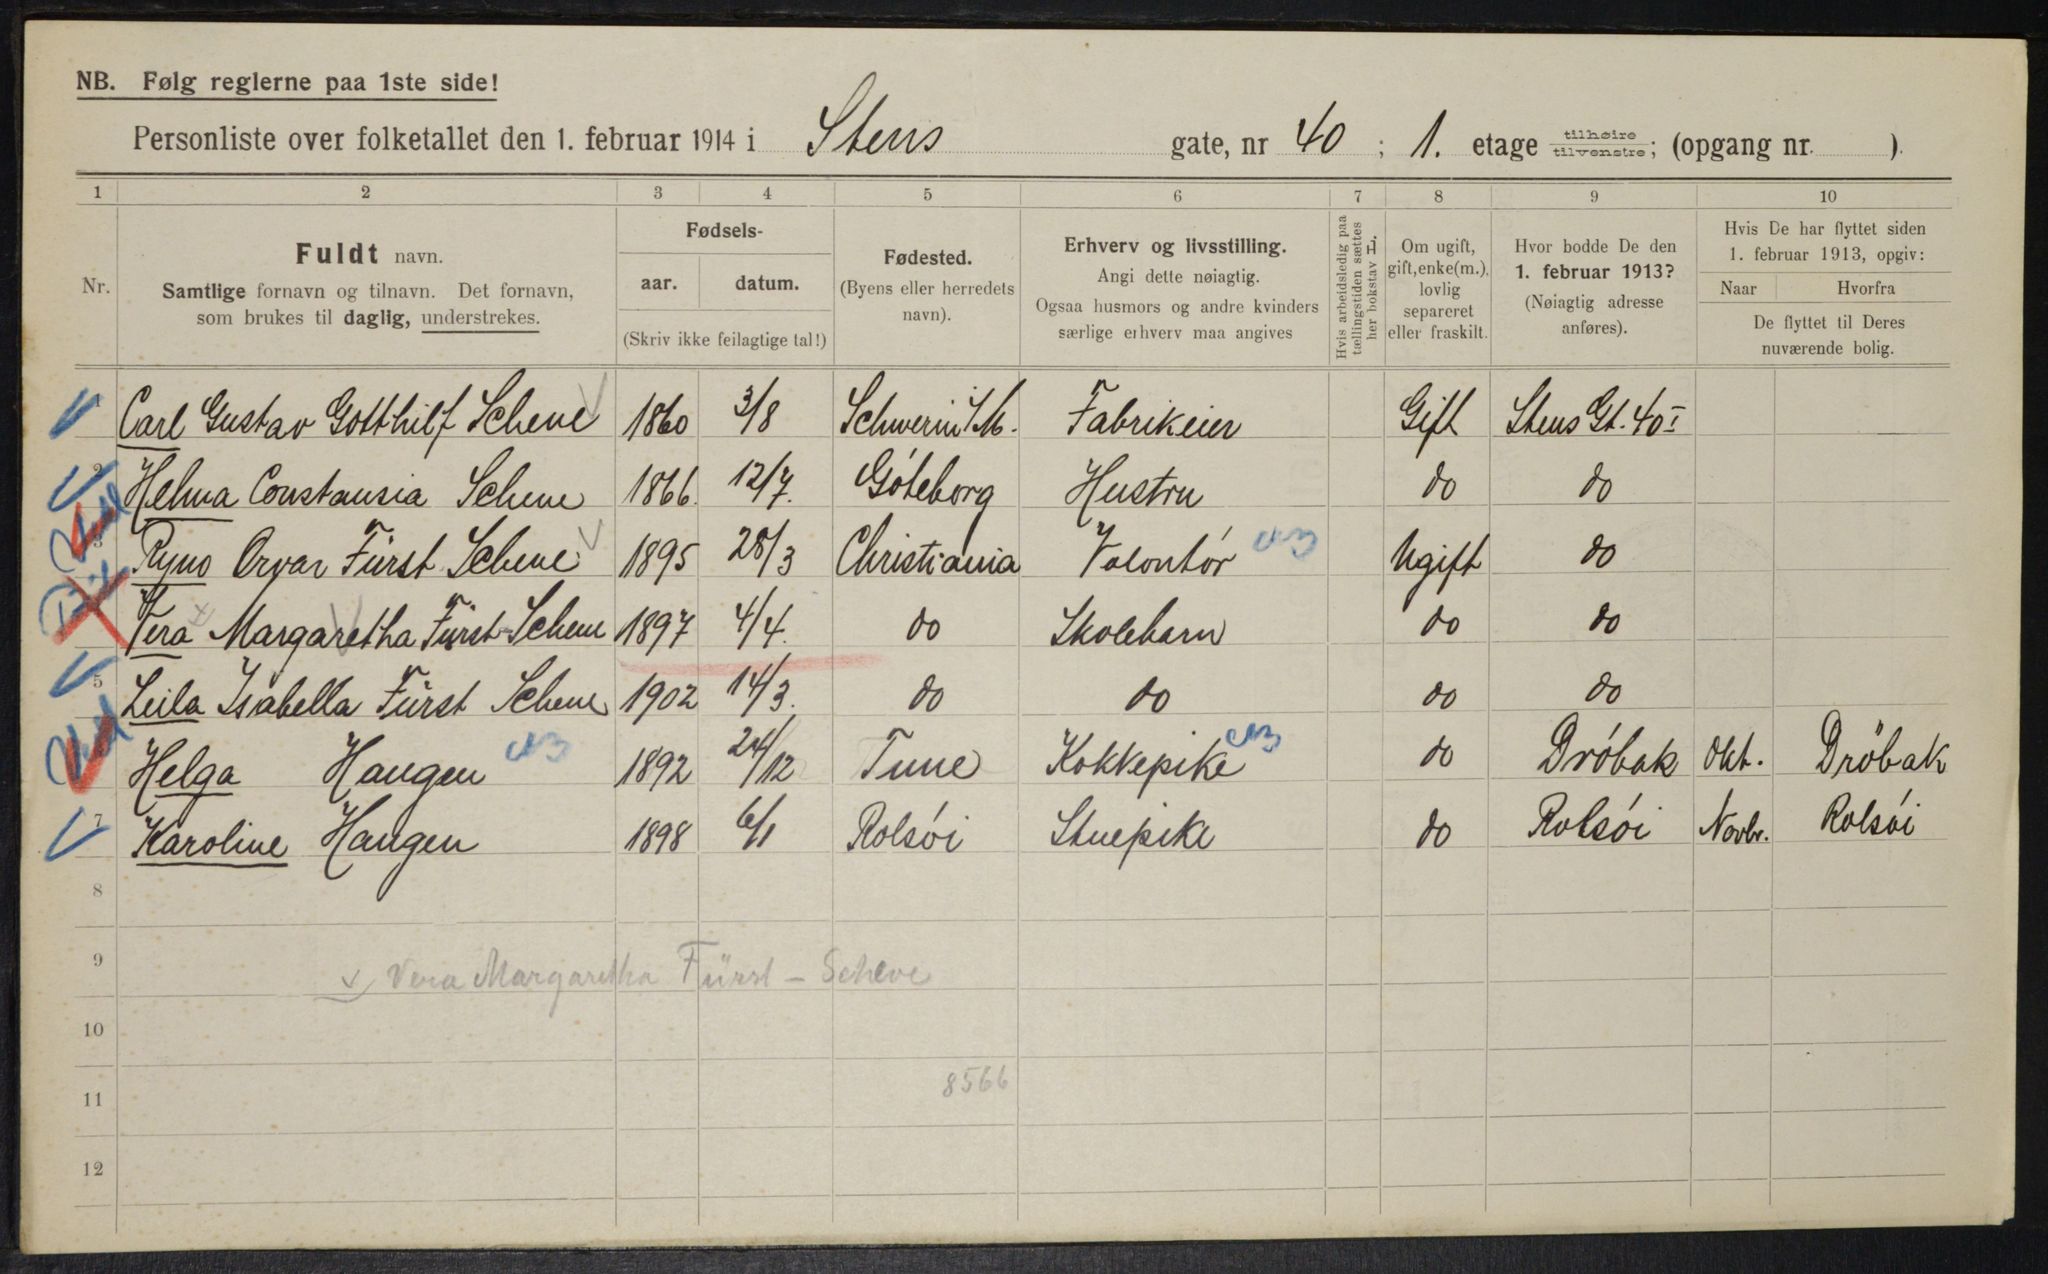 NB. Følg reglerne paa 1ste side!
Personliste over folketallet den 1. februar 1914 i Stens gate, nr 40 ; 1. etage tilhøire tilvenstre; (opgang nr. ).
1 2 3 4 5 6 7 8 9 10
Nr.
Fuldt navn.
Samtlige fornavn og tilnavn. Det fornavn,
som brukes til daglig, understrekes.
Fødsels-
aar. datum.
(Skriv ikke feilagtige tal!)
Fødested.
(Byens eller herredets
navn).
Erhverv og livsstilling.
Angi dette nøiagtig.
Ogsaa husmors og andre kvinders
særlige erhverv maa angives
Hvis arbeidsledig paa
tællingstiden sættes
her bokstav L.
Om ugift,
gift, enke(m.),
lovlig
separeret
eller fraskilt.
Hvor bodde De den
1. februar 1913?
(Nøiagtig adresse
anføres).
Hvis De har flyttet siden
1. februar 1913, opgiv:
Naar Hvorfra
De flyttet til Deres
nuværende bolig.
1 Carl Gustav Gotthilf Scheve 1860 3/8 Schwerin i/M. Fabrikeier Gift Stens Gt. 40 I
2 Helma Constansia Scheve 1866. 12/7. Göteborg Hustru do do
3 Ryno Orvar Fürst Scheve 1895 28/3 Christiania Volontör Ugift do
Vera Margaretha Fürst-Scheve 1897 4/4. do Skolebarn do do
5 Leila Isabella Fürst Scheve 1902 14/3. do do do do
Helga Haugen 1892 24/12 Tune Kokkepike do Dröbak Okt. Dröbak
7 Karoline Haugen 1898 6/1 Rolsöi Stuepike do Rolsöi Novbr. Rolsöi
8
9 x/ Vera Margaretha Fürst - Scheve
10
8566
11
12